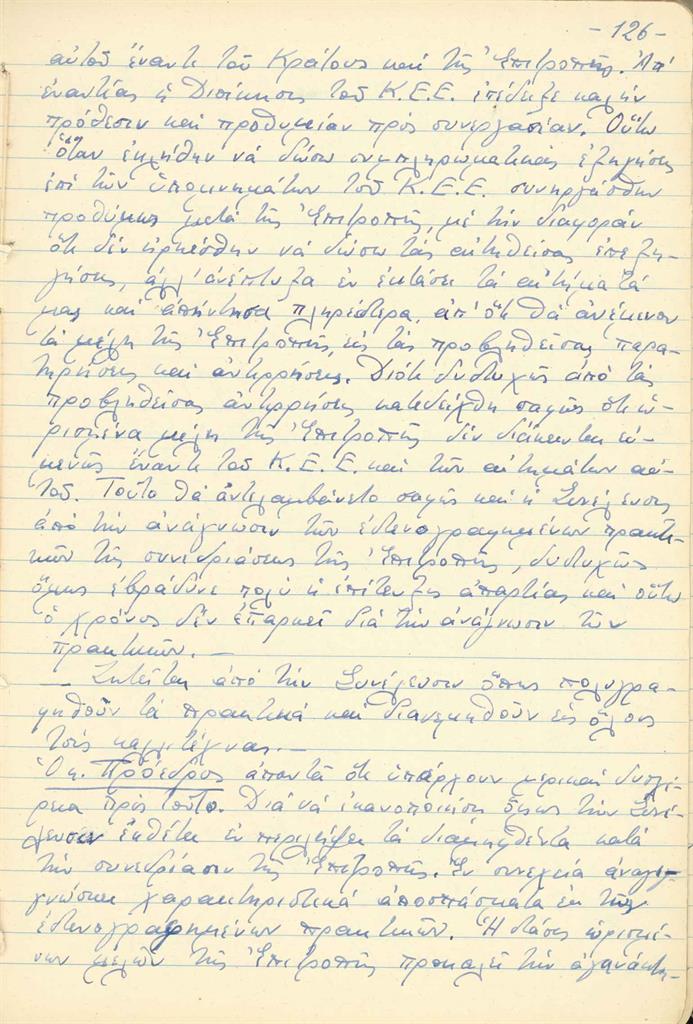 -126-
αὐτοῦ ἔναντι τοῦ Κράτους καὶ τῆς Ἐπιτροπῆς. Ἀπ'
ἐναντίας ἡ Διοίκησις τοῦ Κ.Ε.Ε. ἐπέδειξε καλὴν
πρόθεσιν καὶ προθυμίαν πρὸς συνεργασίαν. Οὕτω
ὅταν ἐκλήθην νὰ δώσω συμπληρωματικὰς ἐξηγήσεις
ἐπὶ τῶν ὑπομνημάτων τοῦ Κ.Ε.Ε. συνηργάσθην
προθύμως μετὰ τῆς Ἐπιτροπῆς, μὲ τὴν διαφορὰν
ὅτι δὲν ἠρκέσθην νὰ δώσω τὰς αἰτηθείσας ἐπεξη-
γήσεις, ἀλλ' ἀνέπτυξα ἐν ἐκτάσει τὰ αἰτήματά
μας καὶ ἀπήντησα πληρέστερα, ἀπ' ὅτι θὰ ἀνέμενον
τὰ μέλη τῆς Ἐπιτροπῆς, εἰς τὰς προβληθείσας παρα-
τηρήσεις καὶ ἀντιρρήσεις. Διότι δυστυχῶς ἀπὸ τὰς
προβληθείσας ἀντιρρήσεις κατεδείχθη σαφῶς ὅτι ὡ-
ρισμένα μέλη τῆς Ἐπιτροπῆς δὲν διάκεινται εὐ-
μενῶς ἔναντι τοῦ Κ.Ε.Ε. καὶ τῶν αἰτημάτων αὐ-
τοῦ. Τοῦτο θὰ ἀντελαμβάνετο σαφῶς καὶ ἡ Συνέλευσις
ἀπὸ τὴν ἀνάγνωσιν τῶν ἐστενογραφημένων πρακτι-
κῶν τῆς συνεδριάσεως τῆς Ἐπιτροπῆς, δυστυχῶς
ὅμως ἐβράδυνε πολὺ ἡ ἐπίτευξις ἀπαρτίας καὶ οὕτω
ὁ χρόνος δὲν ἐπαρκεῖ διὰ τὴν ἀνάγνωσιν τῶν
πρακτικῶν. —
— Ζητεῖται ἀπὸ τὴν Συνέλευσιν ὅπως πολυγρα-
φηθοῦν τὰ πρακτικὰ καὶ διανεμηθοῦν εἰς ὅλους
τοὺς καλλιτέχνας. —
Ὁ κ. Πρόεδρος ἀπαντᾶ ὅτι ὑπάρχουν μερικαὶ δυσχέ-
ρειαι πρὸς τοῦτο. Διὰ νὰ ἱκανοποιήσῃ ὅμως τὴν Συνέ-
λευσιν ἐκθέτει ἐν περιλήψει τὰ διαμειφθέντα κατὰ
τὴν συνεδρίασιν τῆς Ἐπιτροπῆς. Ἐν συνεχείᾳ ἀναγι-
γνώσκει χαρακτηριστικὰ ἀποσπάσματα ἐκ τῶν
ἐστενογραφημένων πρακτικῶν. Ἡ στάσις ὡρισμέ-
νων μελῶν τῆς Ἐπιτροπῆς προκαλεῖ τὴν ἀγανάκτη-